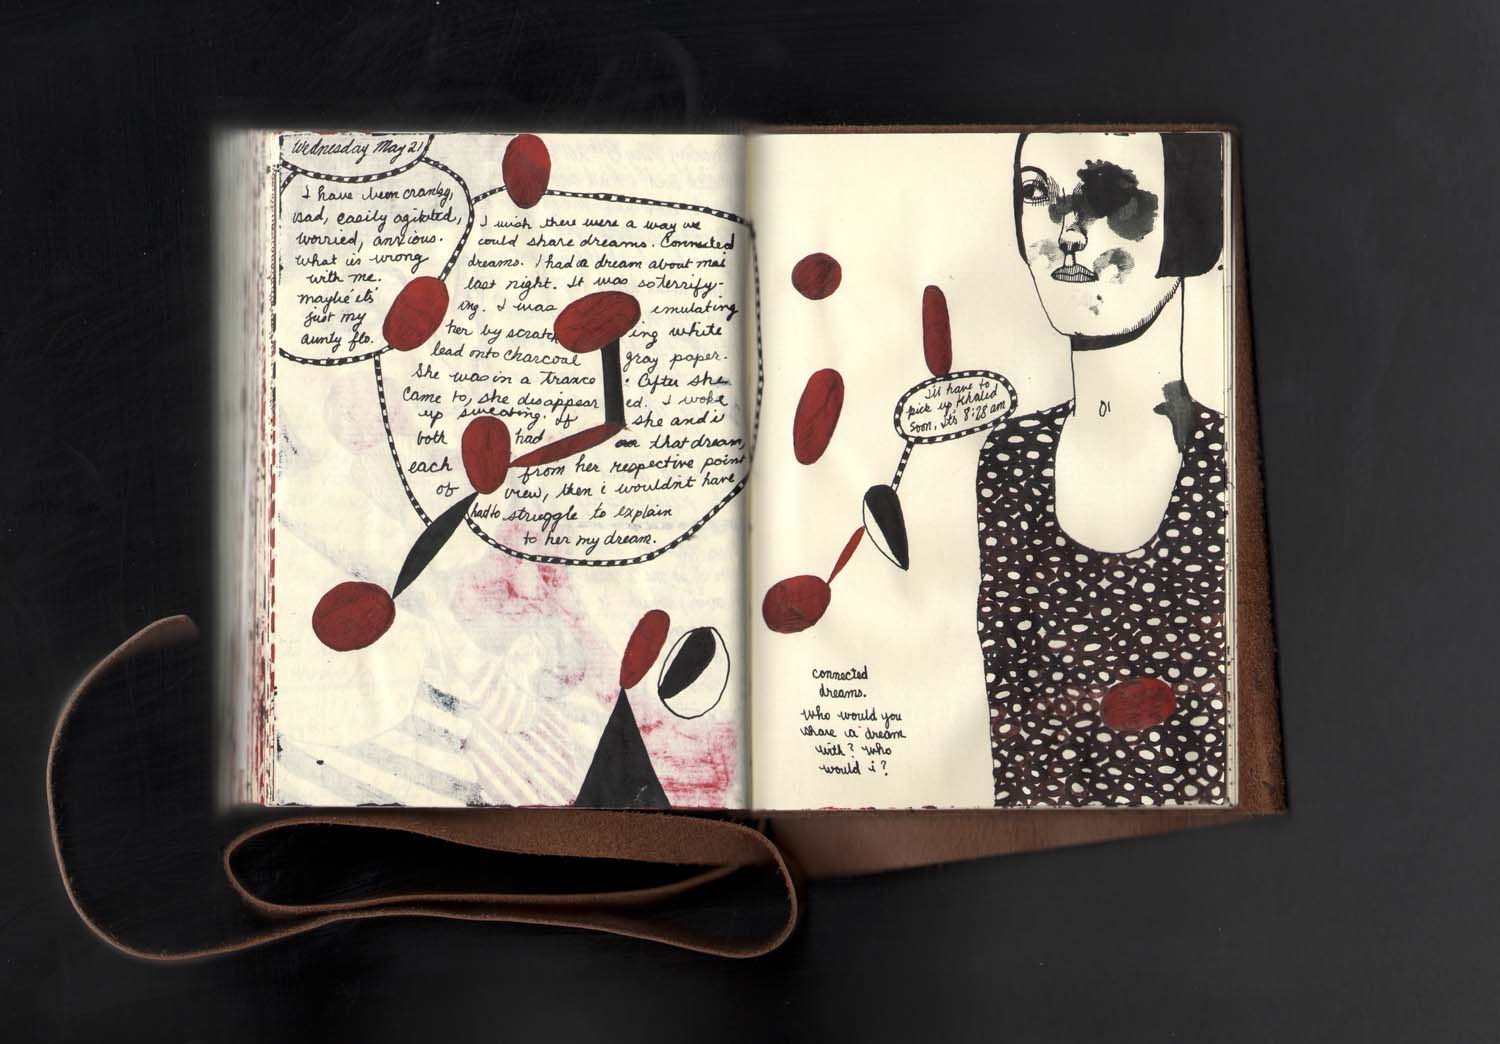 Wednesday May 21
I have been cranky,
sad, easily agitated,
worried, anxious.
what is wrong
with me.
maybe it's
just my
aunty flo.
I wish there were a way we
could share dreams. Connected
dreams. I had a dream about mai
last night. It was so terrify-
ing. I was emulating
her by scratching white
lead onto charcoal gray paper.
She was in a trance. After she
came to, she disappeared. I woke
up sweating. If she and i
both had that dream,
each from her respective point
of view, then i wouldn't have
had to struggle to explain
to her my dream.
I'll have to
pick up Khaled
soon, it's 8:28 am
connected
dreams.
who would you
share a dream
with? who
would i?